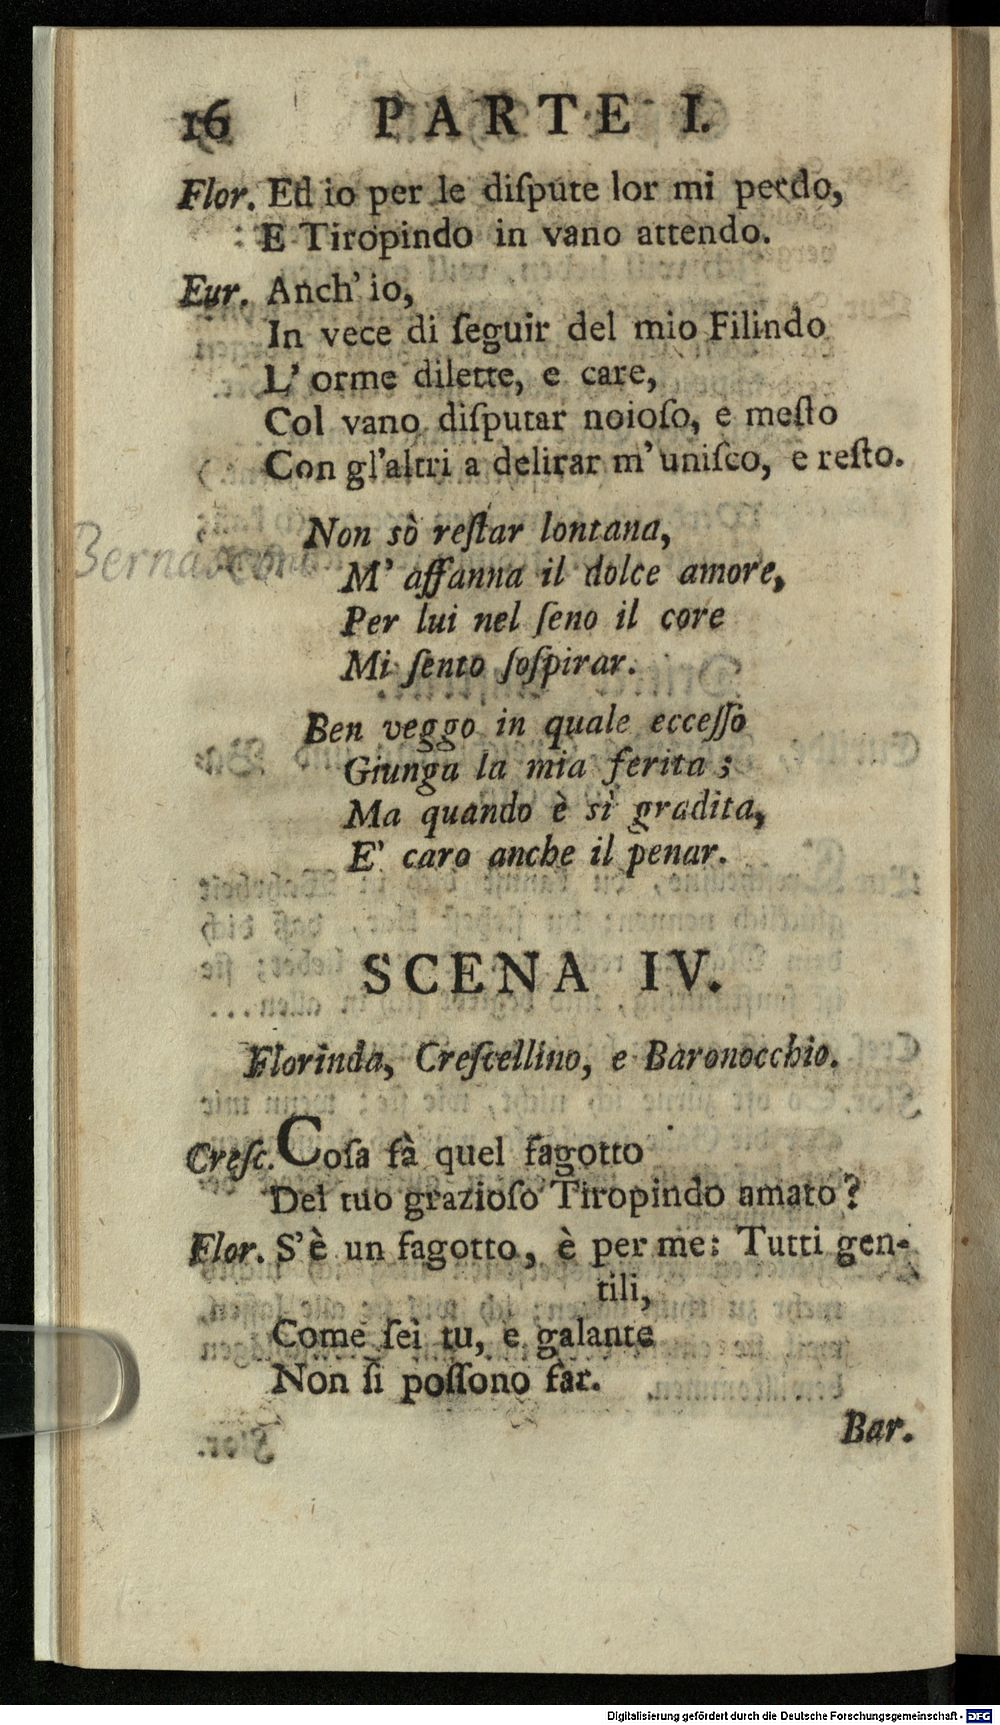 16 PARTE I.
Flor. Ed io per le diſpute lor mi perdo,
E Tiropindo in vano attendo.
Eur. Anch' io,
In vece di ſeguir del mio Filindo
L' orme dilette, e care,
Col vano diſputar noioſo, e meſto
Con gl'altri a delirar m' uniſco, e reſto.
Non sò reſtar lontana,
Bernasconi
M' affanna il dolce amore,
Per lui nel ſeno il core
Mi ſento ſoſpirar.
Ben veggo in quale ecceſſo
Giunga la mia ferita;
Ma quando è sì gradita,
E' caro anche il penar.
SCENA IV.
Florinda, Creſcellino, e Baronocchio.
Creſc. Coſa fà quel fagotto
Del tuo grazioſo Tiropindo amato?
Flor. S'è un fagotto, è per me: Tutti gen-
tili,
Come ſei tu, e galante
Non ſi poſſono far.
Bar.
Digitalisierung gefördert durch die Deutsche Forschungsgemeinschaft - DFG